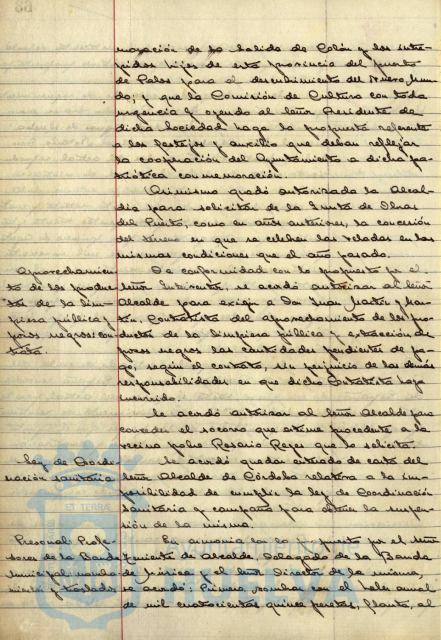 moración de la salida de Colón y los intré-
pidos hijos de esta provincia del puerto
de Palos para el descubrimiento del Nuevo Mun-
do; y que la Comisión de Cultura con toda
urgencia y oyendo al Señor Presidente de
dicha Sociedad haga la propuesta referente
a los festejos y auxilio que deban reflejar
la cooperación del Ayuntamiento a dicha pa-
triótica conmemoración.
Asimismo quedó autorizada la Alcal-
día para solicitar de la Junta de Obras
del Puerto, como en años anteriores, la concesión
del terreno en que se celebren las Veladas en las
mismas condiciones que el año pasado.
Aprovechamien-
to de los produc-
tos de la lim-
pieza pública y
pozos negros: con-
trata.
De conformidad con lo propuesto por el
Señor Interventor, se acordó autorizar al Señor
Alcalde para exigir a Don Juan Martín y Mar-
tín, Contratista del aprovechamiento de los pro-
ductos de la limpieza pública y extracción de
pozos negros las cantidades pendientes de pa-
go, según el contrato, sin perjuicio de las demás
responsabilidades en que dicho Contratista haya
incurrido.
Se acordó autorizar al Señor Alcalde para
conceder el socorro que estime procedente a la
vecina pobre Rosario Reyes que lo solicita.
Ley de Coordi-
nación sanitaria
Se acordó quedar enterado de carta del
Señor Alcalde de Córdoba relativa a la im-
posibilidad de cumplir la ley de Coordinación
Sanitaria y campaña para obtener la suspen-
sión de la misma.
Personal: Profe-
sores de la Banda
Municipal: nombra-
mientos y traslados
En armonía con lo propuesto por el Señor
Teniente de Alcalde Delegado de la Banda
de Música y el Señor Director de la misma,
se acordó: Primero, nombrar con el haber anual
de mil cuatrocientas quince pesetas, flauta, al